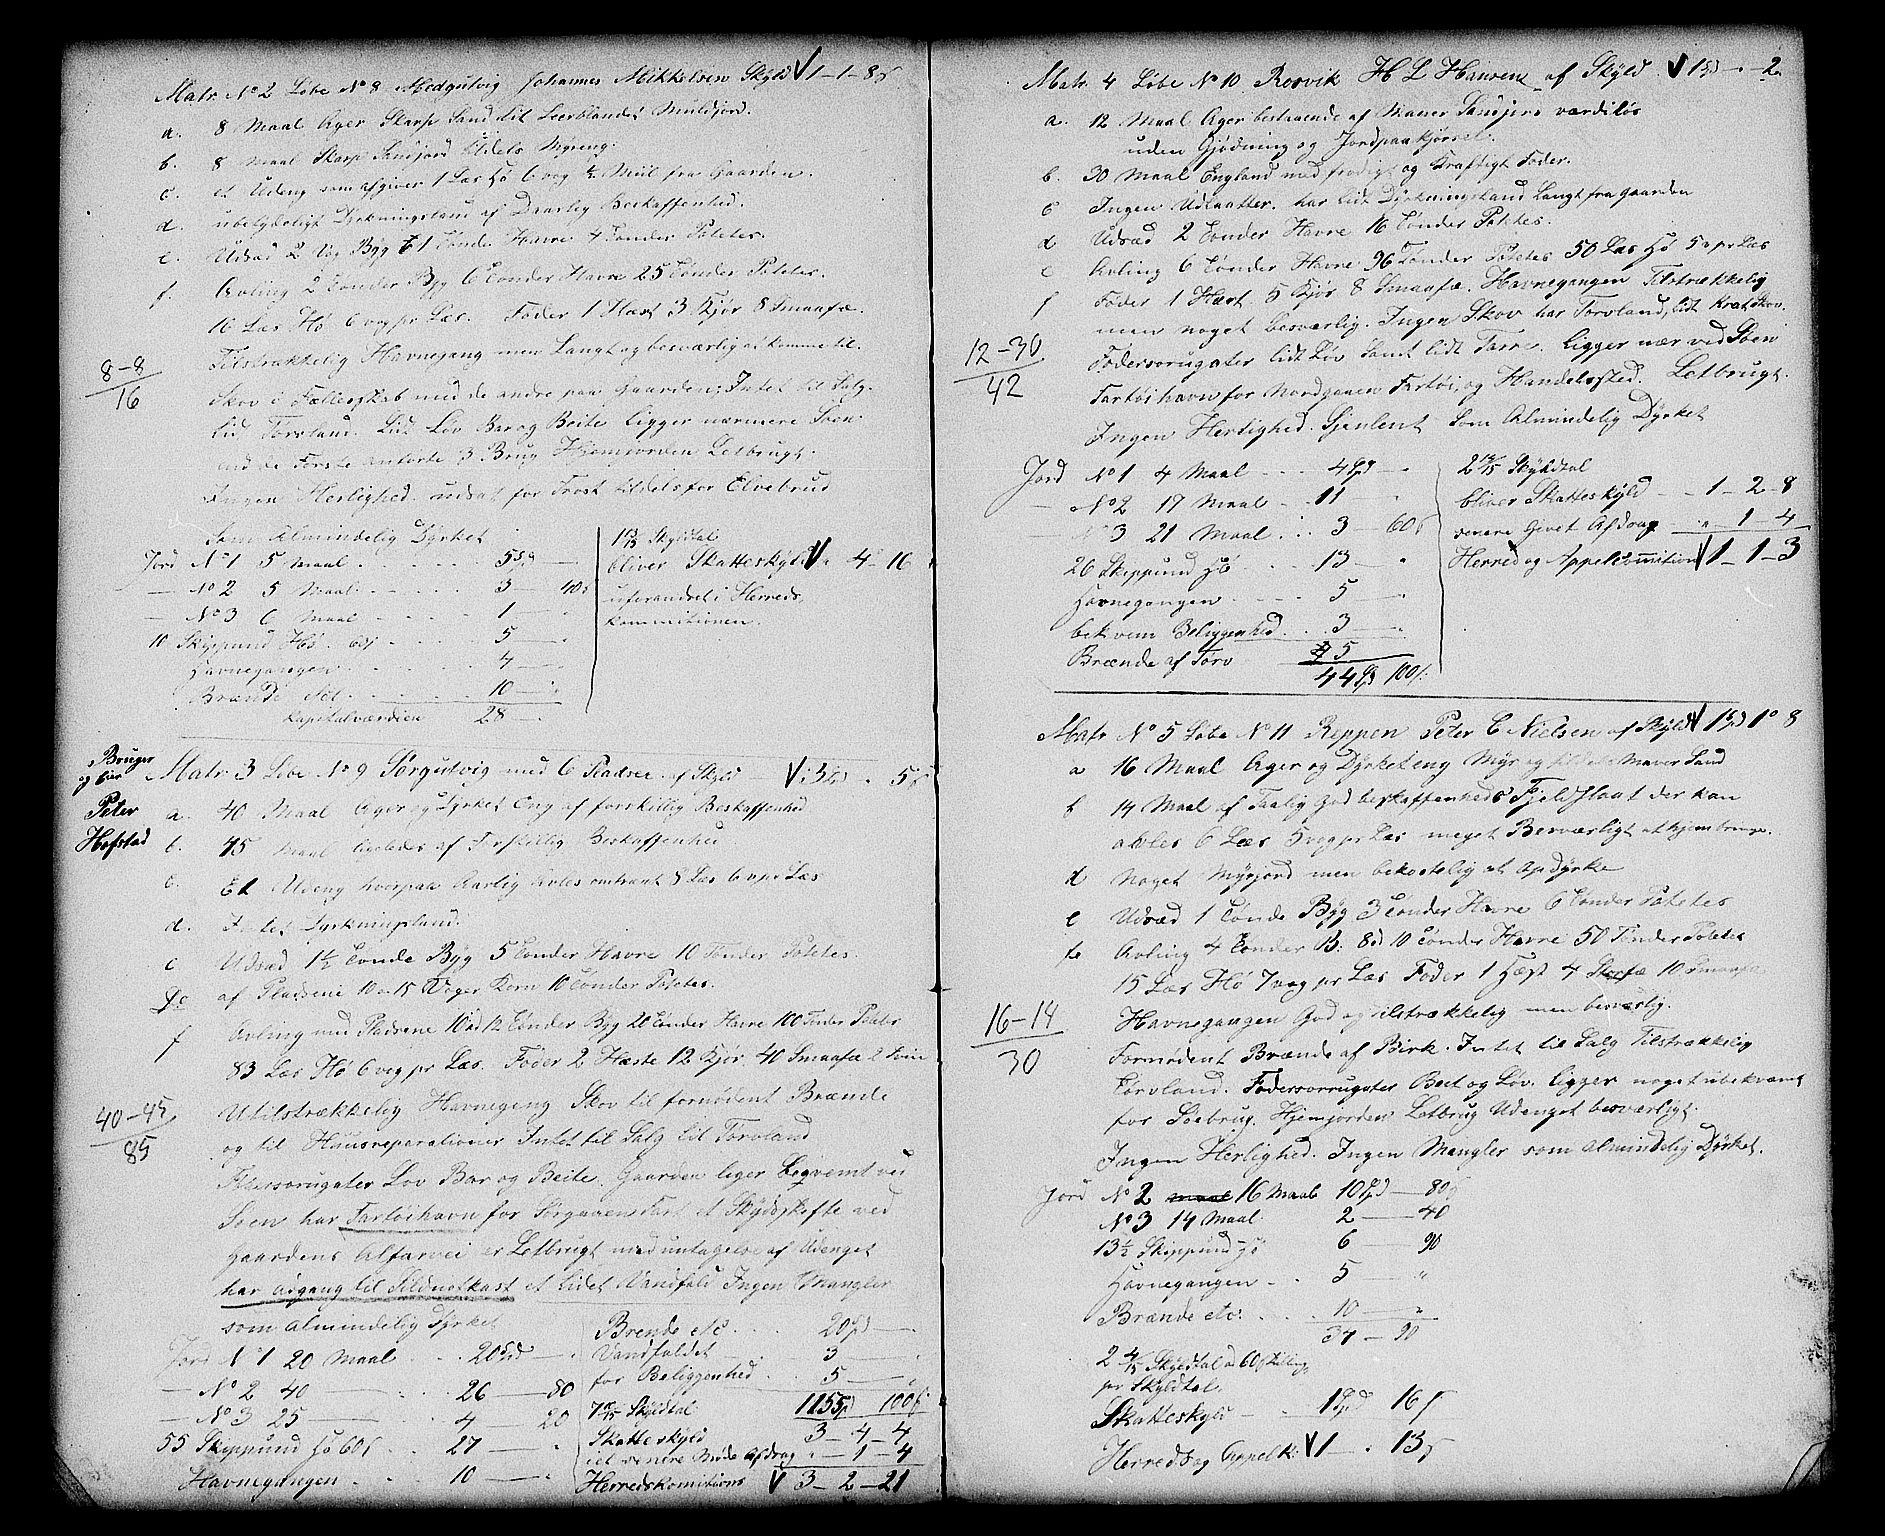 Matr. No 2 Løbe No 8 Medgutvig Johannes Mikkelsen Skyld 1-1-8 ß
a. 8 Maal Ager Skarp Sand til Leerblandet Muldjord.
b. 8 Maal Skarp Sandjord tildels Myreng.
c. et Udeng som afgiver 1 Las Hø 6 vog ½ Miil fra Gaarden.
d. ubetydeligt Dyrkningsland af Daarlig Beskaffenhed.
e. Udsæd 2 Vog Byg 1 Tønde Havre 4 Tønder Poteter.
f. Avling 2 Tønder Byg 6 Tønder Havre 25 Tønder Poteter.
16 Læs Hø 6 vog pr Læs. Føder 1 Hæst 3 Kjør 8 Smaafæ.
8-8
16
Tilstrækkelig Havnegang men Langt og besværlig at komme til.
Skov i Fællesskab med de andre paa Gaarden, Intet til Salg.
lidt Torvland. Lidt Løv Bar og Beite ligger nærmere Søen
end de Første anførte 3 Brug Hjemjorden Letbrugt.
Ingen Herlighed. udsat for Frost tildels for Elvebrud
Som Almindelig Dyrket
Jord No 1 5 Maal 5 Spd
— No 2 5 Maal 3 — 40 ß
— No 3 6 Maal 1 —
10 Skippund Hø 60 ß 5 —
Havnegangen 4 —
Brænde etc 10 —
Kapitalværdien 28 —
Skyldtal
bliver Skatteskyld 4-16
uforandret i Herreds,
kommisionen.
Bruger
og Eier
Peter
Hofstad
Matr. 3 Løbe No 9 Sørgutvig med 6 Pladser af Skyld 3 5 ß
a. 40 Maal Ager og Dyrket Eng af forskillig Beskaffenhed
b. 45 Maal ligeledes af Forskillig Beskaffenhed
c. Et Udeng hvorpaa Aarlig Avles omtrent 8 Læs 6 v pr Læs
d. Intet Dyrkningsland.
e Udsæd 1½ Tønde Byg 5 Tønder Havre 10 Tønder Poteter.
af Pladsene 10 a 15 Voger Korn 10 Tønder Poteter.
f Avling med Pladsene 10 a 12 Tønder Byg 20 Tønder Havre 100 Tønder Poteter
83 Læs Hø 6 vog pr Læs. Føder 2 Hæste 12 Kjør 40 Smaafæ 2 Sviin
40-45
85
Utilstrækkelig Havnegang Skov til fornødent Brænde
og til Huusreparationer Intet til Salg lit Torvland
Fodersorugater Løv Bar og Beite. Gaarden liger Beqvemt ved
Søen har Fartøihavn for Sørgaaende Fart et Skydsskifte ved
Gaardens Alfarvei er Letbrugt med untagelse af Udenget
har adgang til Sildnotkast et lidet Vandfald Ingen Mangler
som almindelig Dyrket
Jord No 1 20 Maal 20 Spd —
— No 2 40 — 26 — 80
— No 3 25 — 4 — 20
55 Skippund Hø 60 ß 27 —
Havnegangen 10 —
Brende etc 20 Spd —
Vandfaldet 3 —
for Beliggenhed 5 —
Skyldtal 115 Spd 100 ß
Skatteskyld 3-4-4
i et senere Møde Afdrag 1-4
Herredskomisions 3-2-21
Matr. 4 Løbe No 10 Rosvik H L Hansens af Skyld 1 2
a. 12 Maal Ager bestaaende af Maver Sandjord værdiløs
uden Gjødning og Jordpaakjørsel.
b. 30 Maal England med frodigt og Kraftigt Foder.
c Ingen Udslaatter. har lidt Dyrkningsland Langt fra Gaarden
d Udsæd 2 Tønder Havre 16 Tønder Poteter.
e Avling 6 Tønder Havre 96 Tønder Poteter 50 Læs Hø 5 v pr Læs
f Føder 1 Hæst 5 Kjør 8 Smaafæ. Havnegangen Tilstrækkelig
men noget besværlig. Ingen Skov har Torvland, lidt Krat Skov.
12-30
42
Fodersorugater lidt Løv Samt lidt Tarre. Ligger nær ved Søen
Fartøihavn for Nordgaaen Fartøi, og Handelssted. Letbrugt.
Ingen Herlighed. Som Almindelig Dyrket
Jord No 1 4 Maal 4 Spd
— No 2 17 Maal 11 —
No 3 21 Maal 3 — 60 ß
26 Skippund Hø 13 —
Havnegangen 5 —
bekvem Beliggenhed 3 —
Brænde af Torv 5
44 Spd 100 ß
Skyldtal
bliver Skatteskyld 1-2-8
senere Givet Afdrag 1-4
Herred og Appelcommition 1-1-3
Matr No 5 Løbe No 11 Reppen Peter C Nielsen af Skyld 1 1 8
a 16 Maal Ager og Dyrket eng Myr og tildels Maver Sand
b 14 Maal af Taalig God beskaffenheds Fjeldslaat der kan
avles 6 Læs 5 vog pr Læs meget Besværligt at hjembringe.
d Noget Myrjord men bekostelig at Opdyrke
e Udsæd 1 Tønde Byg 3 Tønder Havre 6 Tønder Poteter
f Avling 4 Tønder B: 8 a 10 Tønder Havre 50 Tønder Poteter
15 Læs Hø 7 vog pr Læs Føder 1 Hæst 4 Storfæ 10 Smaafæ
16-14
30
Havnegangen God og tilstrækkelig men besværlig.
Fornødent Brænde af Birk. Intet til Salg Tilstrækkelig
Torvland. Fodersorrugater Beit og Løv. ligger noget ubekvæmt
for Søebrug. Hjemjorden Letbrug Udenget besværligt.
Ingen Herlighed. Ingen Mangler som almindelig Dyrket.
Jord No 2 16 Maal 10 Spd — 80 ß
No 3 14 Maal 2 — 40
13½ Skippund Hø 6 — 90
Havnegangen 5 — "
Brænde etc: 10 —
34 — 90
Skyldtal a 60 Skilling
pr Skyldtal.
Skatteskyld 1 16 ß
Herreds og Appelk: 1 — 13 ß